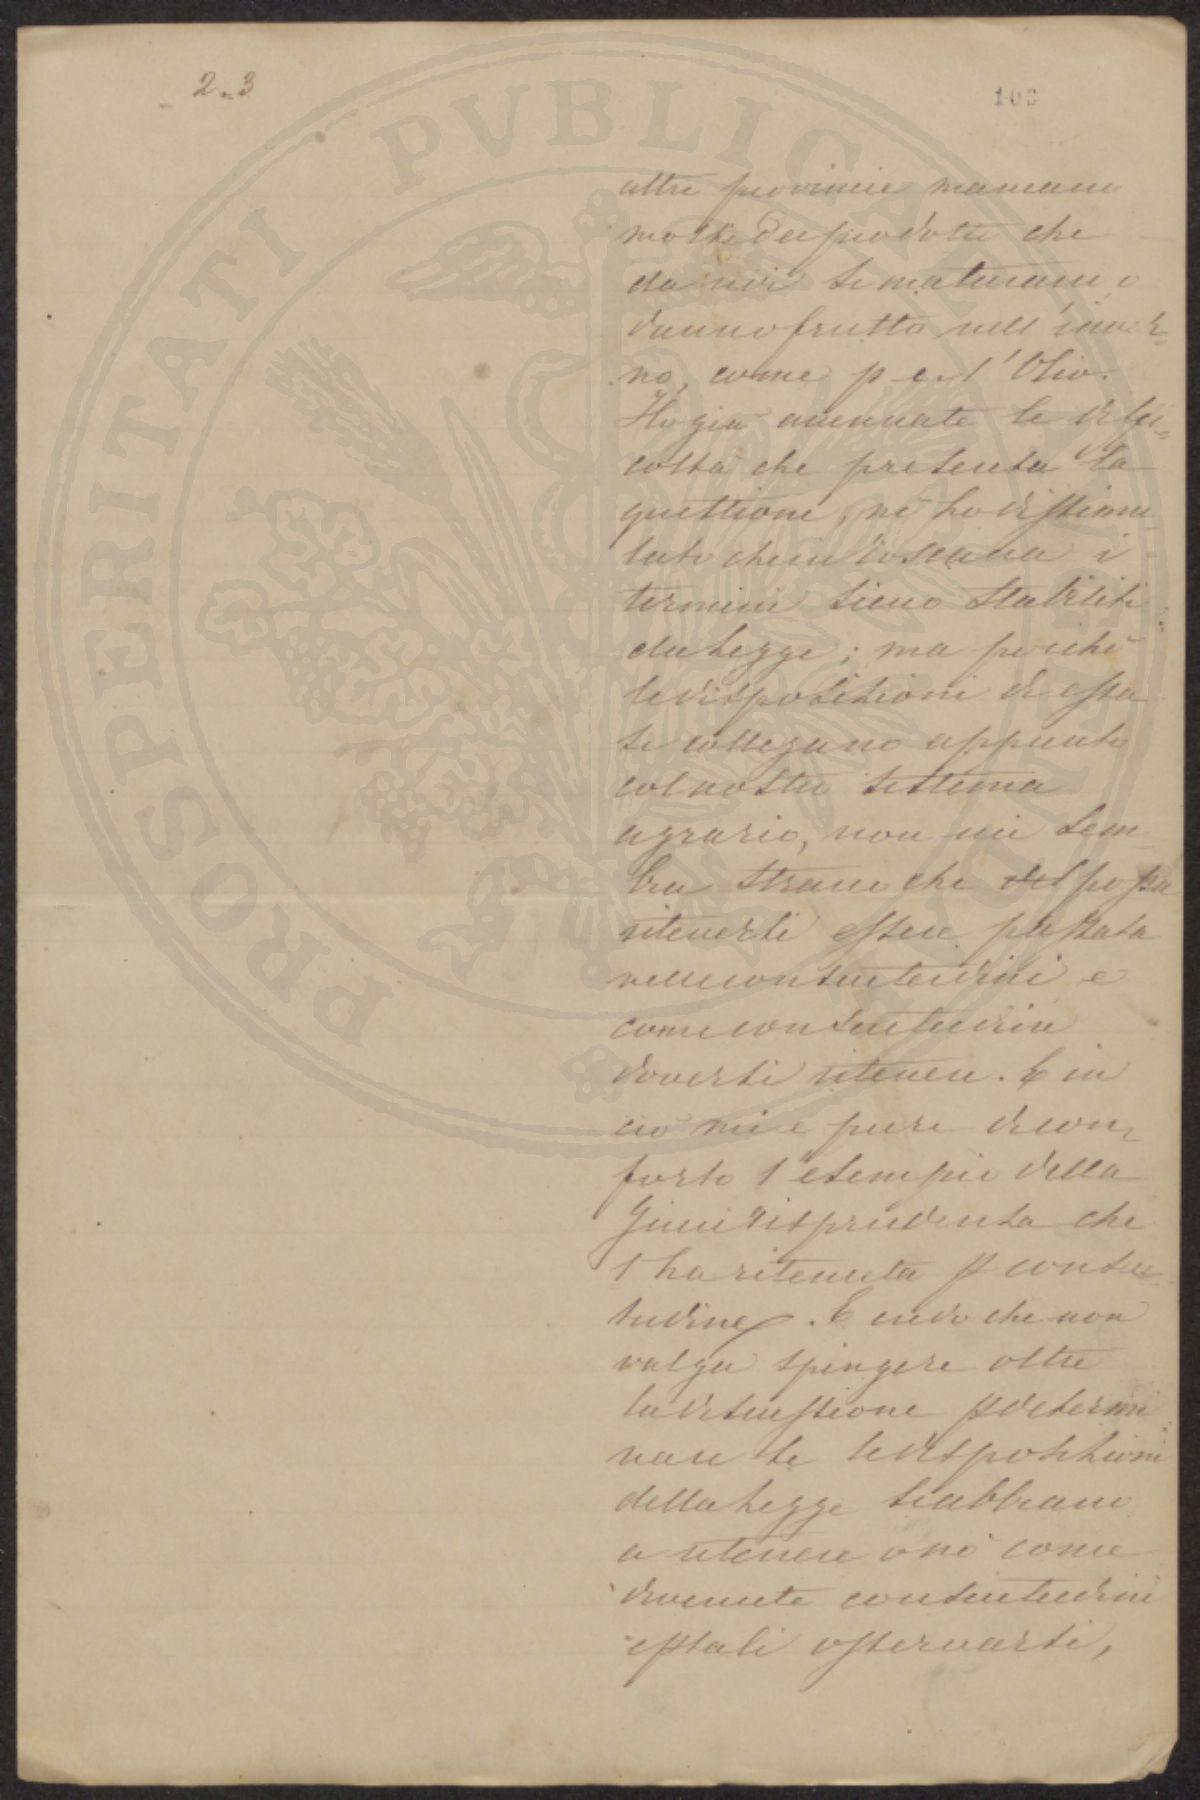 2.3
103
PROSPERITATI PVBLICAE
altre provincie mancano
molti dei prodotti che
da noi si maturano, o
danno frutto nell'inver-
no, come p e. l'Olio.
Ho già accennate le diffi-
coltà che presenta la
questione, nè ho dissimu-
lato che in Toscana i
termini sieno stabiliti
da legge; ma perchè
le disposizioni di essa
si collegano appunto
col nostro sistema
agrario, non mi sem-
bra strano che possa
ritenersi essere passata
nelle consuetudini e
come consuetudine
doversi ritenere. E in
ciò mi è pure di con-
forto l'esempio della
Giurisprudenza che
l'ha ritenuta p consue-
tudine. E credo che non
valga spingere oltre
la discussione p determi
nare se le disposizioni
della legge si abbiano
a ritenere o nò come
divenute consuetudini
e p tali osservarsi,